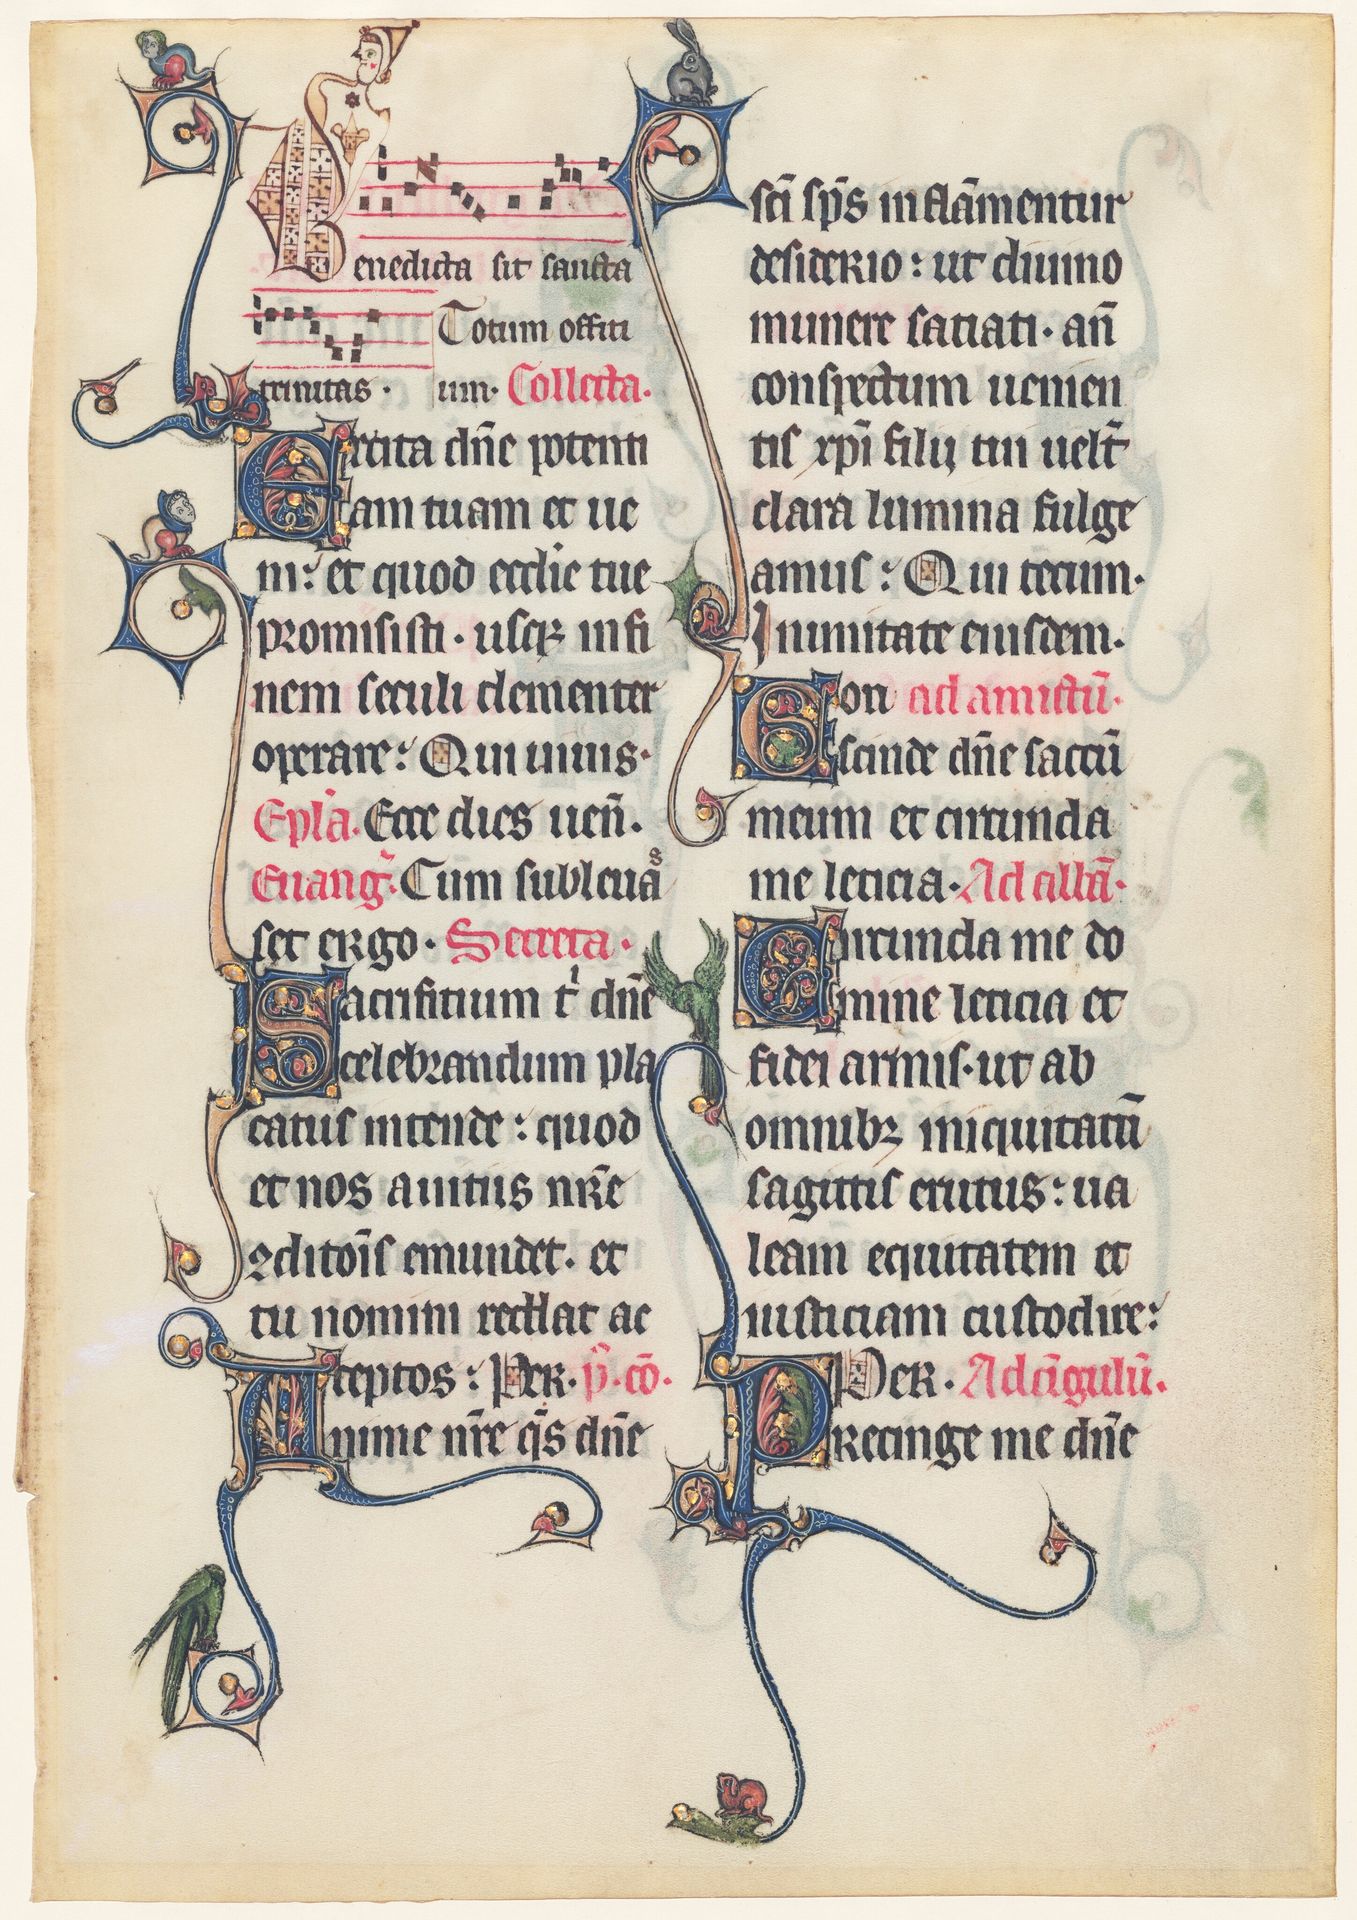 Benedicta sit sancta
Totum offiti
trinitas · um · Collecta ·
Excita dn̄e potenti
am tuam et ue
ni : et quod ecclie tue
promisisti · usq₃ in fi
nem seculi clementer
operare : Qui uiuis ·
Epl̄a · Ecce dies ueñ ·
Euang̃ · Cum subleuaˢ
set ergo · Secreta ·
Sacrifitium t̾ dn̄e
celebrandum pla
catus intende : quod
et nos a uitiis nr̄e
ꝯditōis emundet · et
tu nomini reddat ac
ceptos : Per · p̄ · cō ·
Anime nr̄e q̄s dn̄e
sc̄i sp̄s inflāmentur
desiderio : ut diuino
munere satiati · añ
conspectum uenien
tis xp̄i filij tui uelt̄
clara lumina fulge
amus : Qui tecum ·
In unitate eiusdem ·
Eon ad amictū ·
scinde dn̄e saccū
meum et circunda
me leticia · Ad albā ·
Circunda me do
mine leticia et
fidei armis · ut ab
omnib₃ iniquitatū
sagittis erutus : ua
leam equitatem et
iusticiam custodire :
Per · Ad cīgulū ·
Precinge me dn̄e